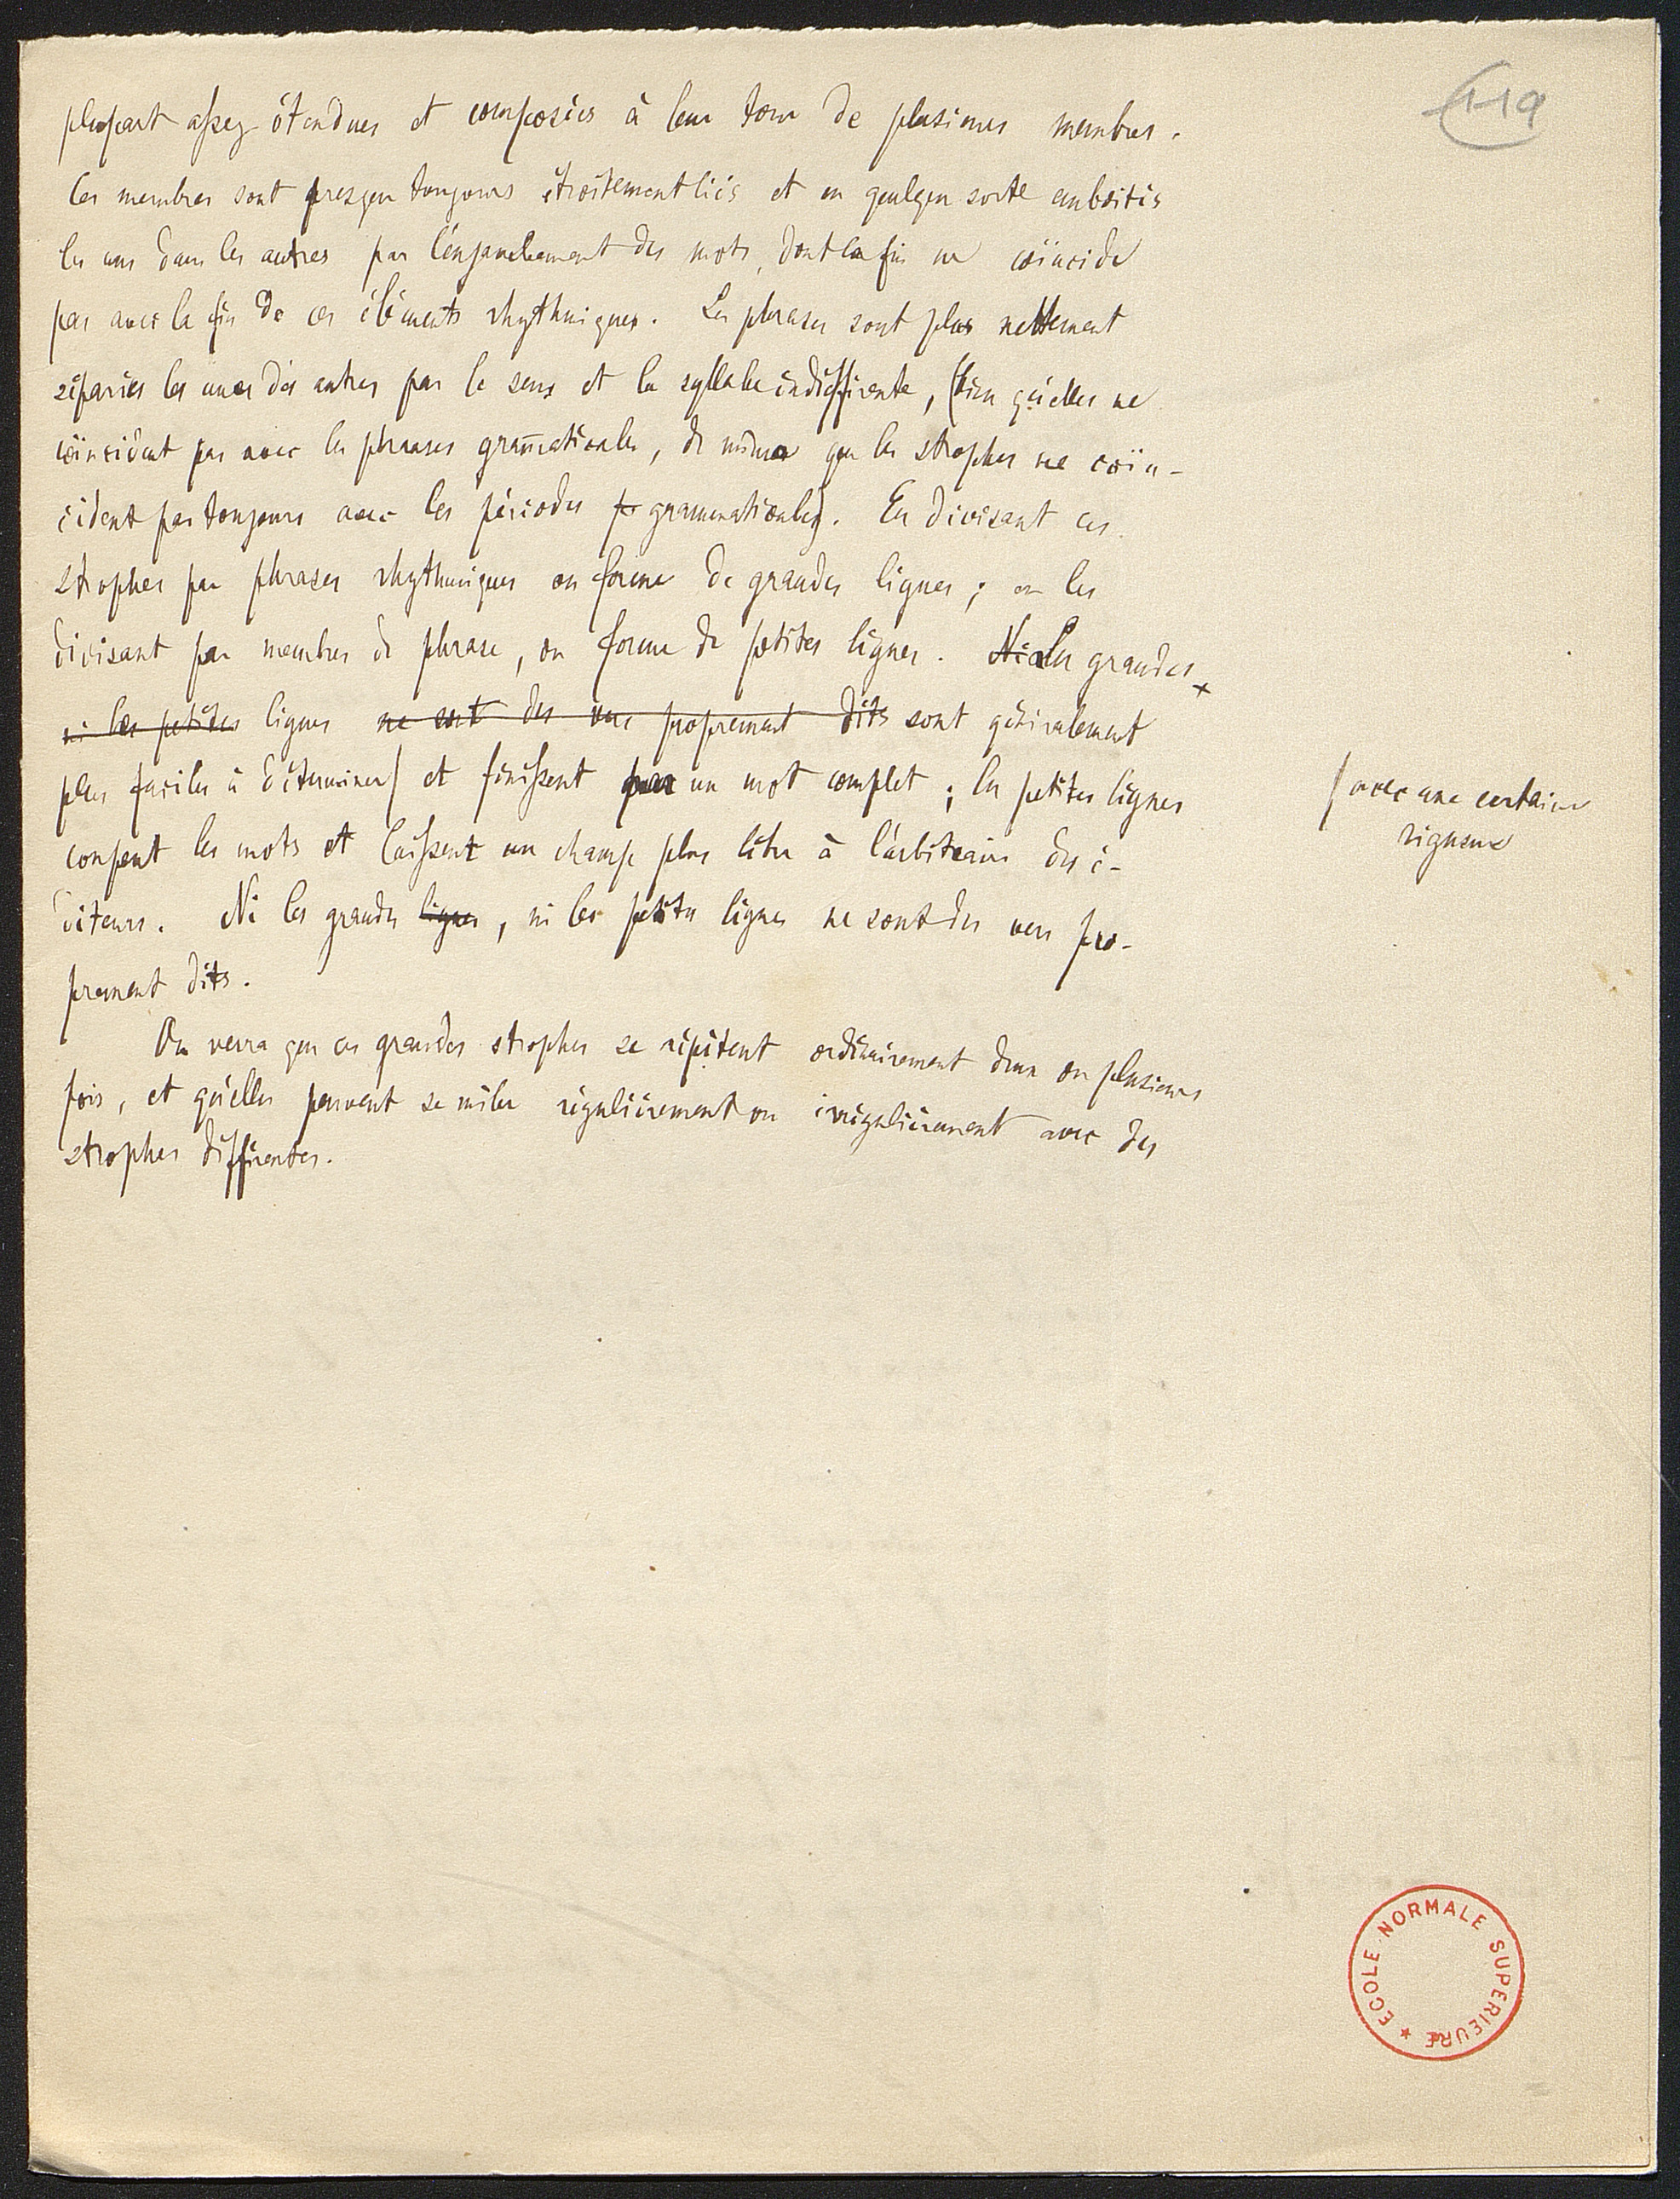 119
plupart assez étendues et composées à leur tour de plusieurs membres.
Ces membres sont presque toujours étroitement liés et en quelque sorte emboîtés
les uns dans les autres par l'enjambement des mots, dont la fin ne coïncide
pas avec la fin de ces éléments rhythmiques. Les phrases sont plus nettement
séparées les unes des autres par le sens et la syllabe indifférente, (bien qu'elles ne
coïncident pas avec les phrases grammaticales, de même que les strophes ne coïn-
cident pas toujours avec les périodes grammaticales). En divisant ces
strophes par phrases rhythmiques on forme de grandes lignes; en les
divisant par membres de phrase, on forme de petites lignes. Ni Les grandes
ni les petites lignes ne sont des vers proprement dits sont généralement
plus faciles à déterminer/ et finissent par un mot complet; les petites lignes
/ avec une certaine
rigueur
coupent les mots et laissent un champ plus libre à l'arbitraire des é-
diteurs. Ni les grandes lignes, ni les petites lignes ne sont des vers pro-
prement dits.
On verra que ces grandes strophes se répètent ordinairement deux ou plusieurs
fois, et qu'elles peuvent se mêler régulièrement ou irrégulièrement avec des
strophes différentes.
ECOLE NORMALE SUPERIEURE